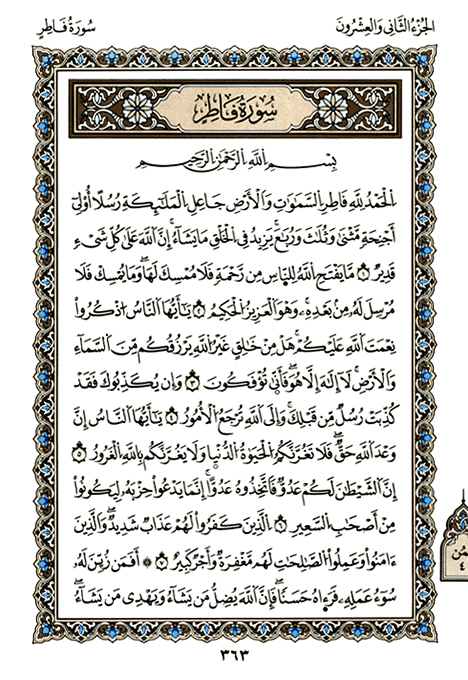 الجُزْءُ الثَّانِى وَالعِشْرُونَ
سُورَةُ فَاطِرٍ
سُورَةُ فَاطِرٍ
بِسْمِ اللَّهِ الرَّحْمَٰنِ الرَّحِيمِ
الْحَمْدُ لِلَّهِ فَاطِرِ السَّمَٰوَٰتِ وَالْأَرْضِ جَاعِلِ الْمَلَٰٓئِكَةِ رُسُلًا أُو۟لِىٓ
أَجْنِحَةٍ مَّثْنَىٰ وَثُلَٰثَ وَرُبَٰعَ ۚ يَزِيدُ فِى الْخَلْقِ مَا يَشَآءُ ۚ إِنَّ اللَّهَ عَلَىٰ كُلِّ شَىْءٍ
قَدِيرٌ ١ مَّا يَفْتَحِ اللَّهُ لِلنَّاسِ مِن رَّحْمَةٍ فَلَا مُمْسِكَ لَهَا ۖ وَمَا يُمْسِكْ فَلَا
مُرْسِلَ لَهُۥ مِنۢ بَعْدِهِۦ ۚ وَهُوَ الْعَزِيزُ الْحَكِيمُ ٢ يَٰٓأَيُّهَا النَّاسُ اذْكُرُوا۟
نِعْمَتَ اللَّهِ عَلَيْكُمْ ۚ هَلْ مِنْ خَٰلِقٍ غَيْرُ اللَّهِ يَرْزُقُكُم مِّنَ السَّمَآءِ
وَالْأَرْضِ ۚ لَآ إِلَٰهَ إِلَّا هُوَ ۖ فَأَنَّىٰ تُؤْفَكُونَ ٣ وَإِن يُكَذِّبُوكَ فَقَدْ
كُذِّبَتْ رُسُلٌ مِّن قَبْلِكَ ۚ وَإِلَى اللَّهِ تُرْجَعُ الْأُمُورُ ٤ يَٰٓأَيُّهَا النَّاسُ إِنَّ
وَعْدَ اللَّهِ حَقٌّ ۖ فَلَا تَغُرَّنَّكُمُ الْحَيَوٰةُ الدُّنْيَا ۖ وَلَا يَغُرَّنَّكُم بِاللَّهِ الْغَرُورُ ٥
إِنَّ الشَّيْطَٰنَ لَكُمْ عَدُوٌّ فَاتَّخِذُوهُ عَدُوًّا ۚ إِنَّمَا يَدْعُوا۟ حِزْبَهُۥ لِيَكُونُوا۟
مِنْ أَصْحَٰبِ السَّعِيرِ ٦ الَّذِينَ كَفَرُوا۟ لَهُمْ عَذَابٌ شَدِيدٌ ۖ وَالَّذِينَ
ءَامَنُوا۟ وَعَمِلُوا۟ الصَّٰلِحَٰتِ لَهُم مَّغْفِرَةٌ وَأَجْرٌ كَبِيرٌ ٧ ۞ أَفَمَن زُيِّنَ لَهُۥ
سُوٓءُ عَمَلِهِۦ فَرَءَاهُ حَسَنًا ۖ فَإِنَّ اللَّهَ يُضِلُّ مَن يَشَآءُ وَيَهْدِى مَن يَشَآءُ ۖ
٣٦٣